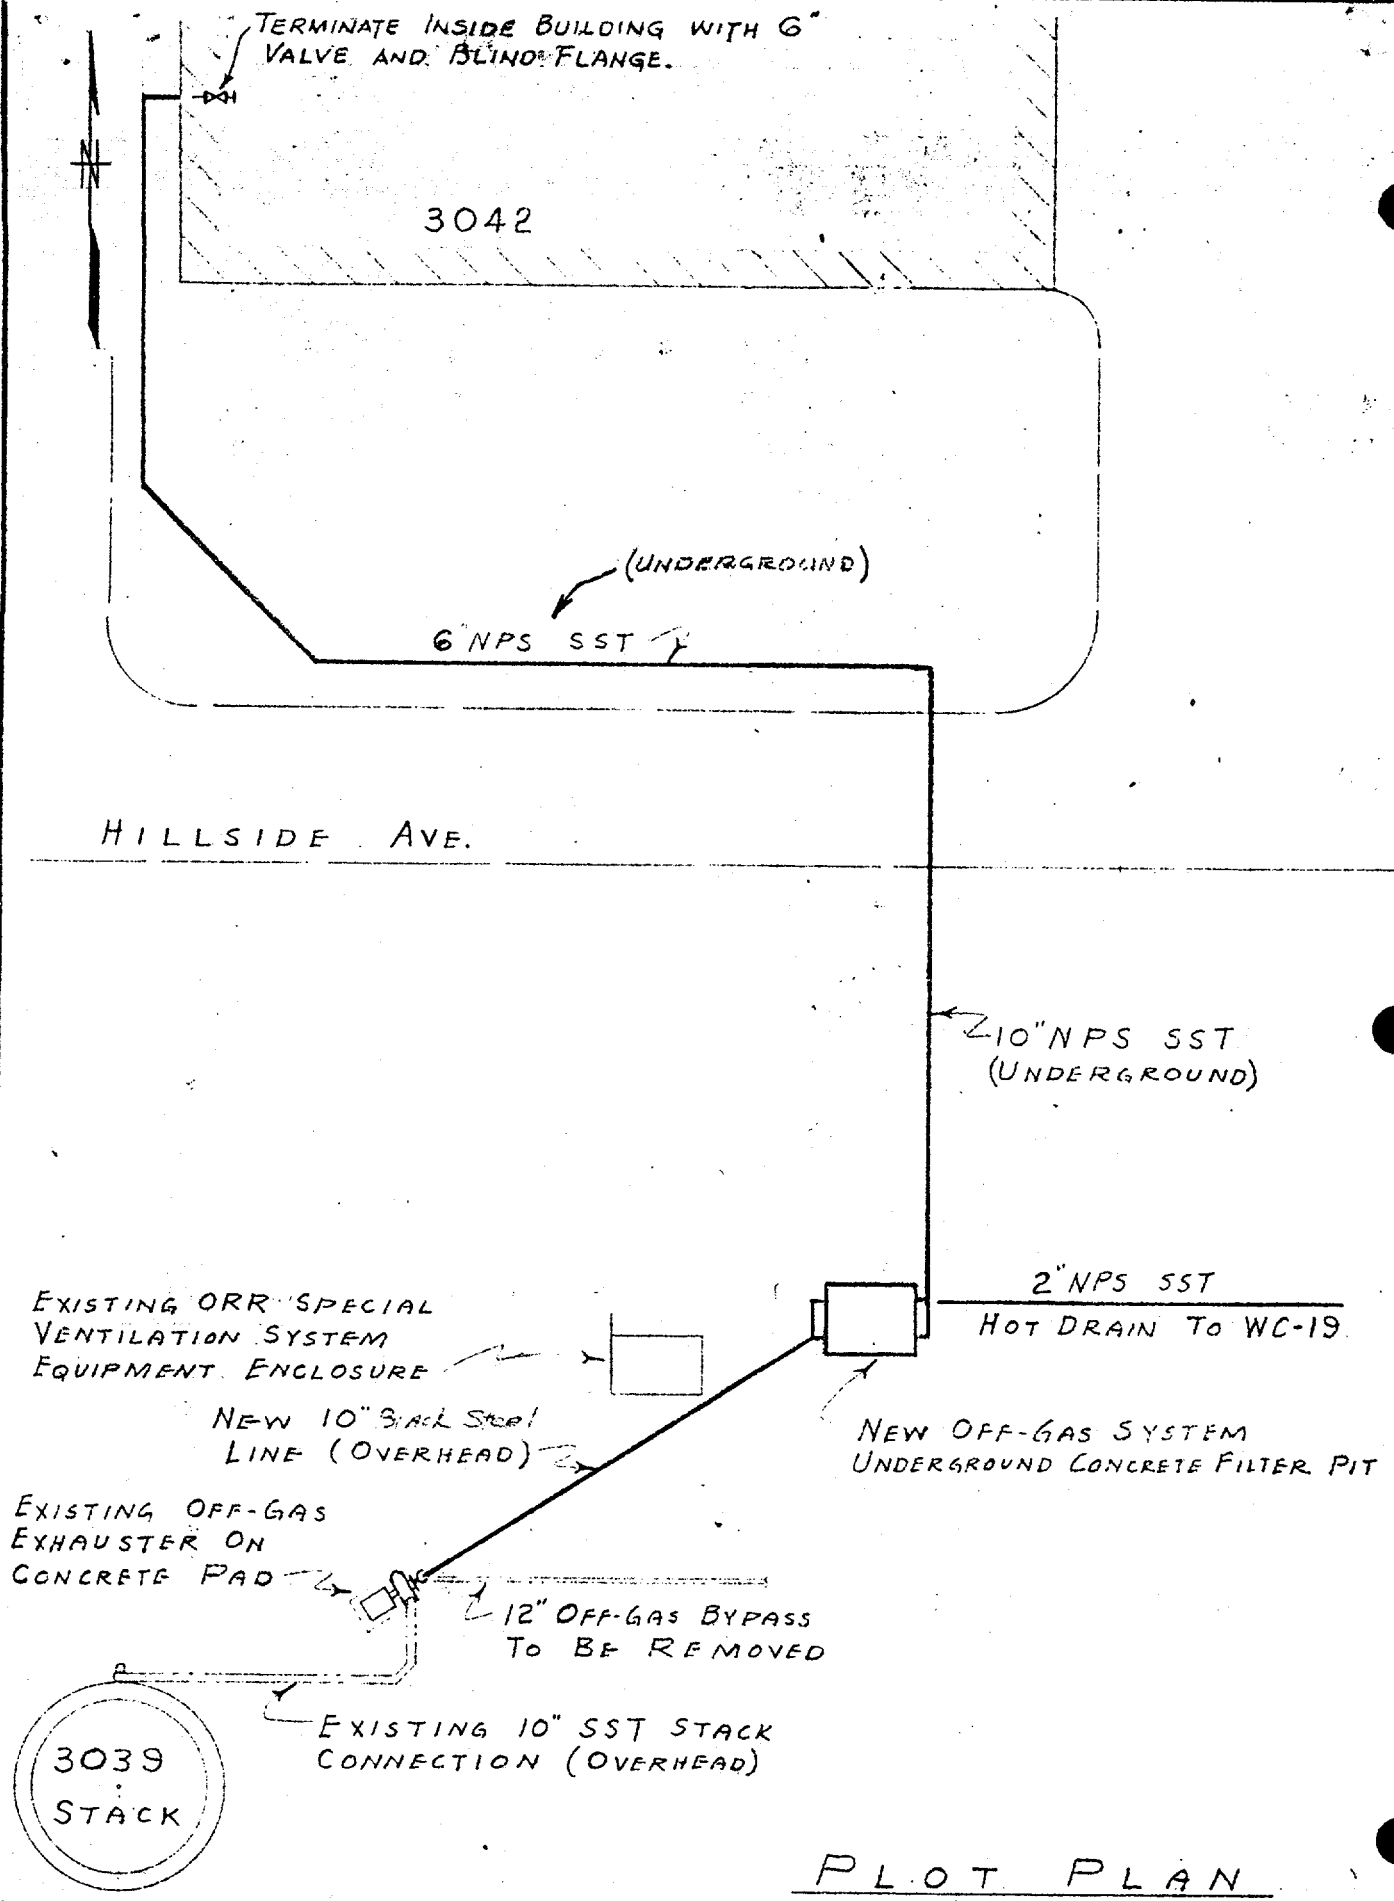 TERMINATE INSIDE BUILDING WITH 6"
VALVE AND BLIND FLANGE.
N
3042
(UNDERGROUND)
6" NPS SST
HILLSIDE AVE.
10" NPS SST
(UNDERGROUND)
2" NPS SST
HOT DRAIN TO WC-19
EXISTING ORR SPECIAL
VENTILATION SYSTEM
EQUIPMENT ENCLOSURE
NEW 10" Black Steel
LINE (OVERHEAD)
NEW OFF-GAS SYSTEM
UNDERGROUND CONCRETE FILTER PIT
EXISTING OFF-GAS
EXHAUSTER ON
CONCRETE PAD
12" OFF-GAS BYPASS
TO BE REMOVED
EXISTING 10" SST STACK
CONNECTION (OVERHEAD)
3039
STACK
PLOT PLAN